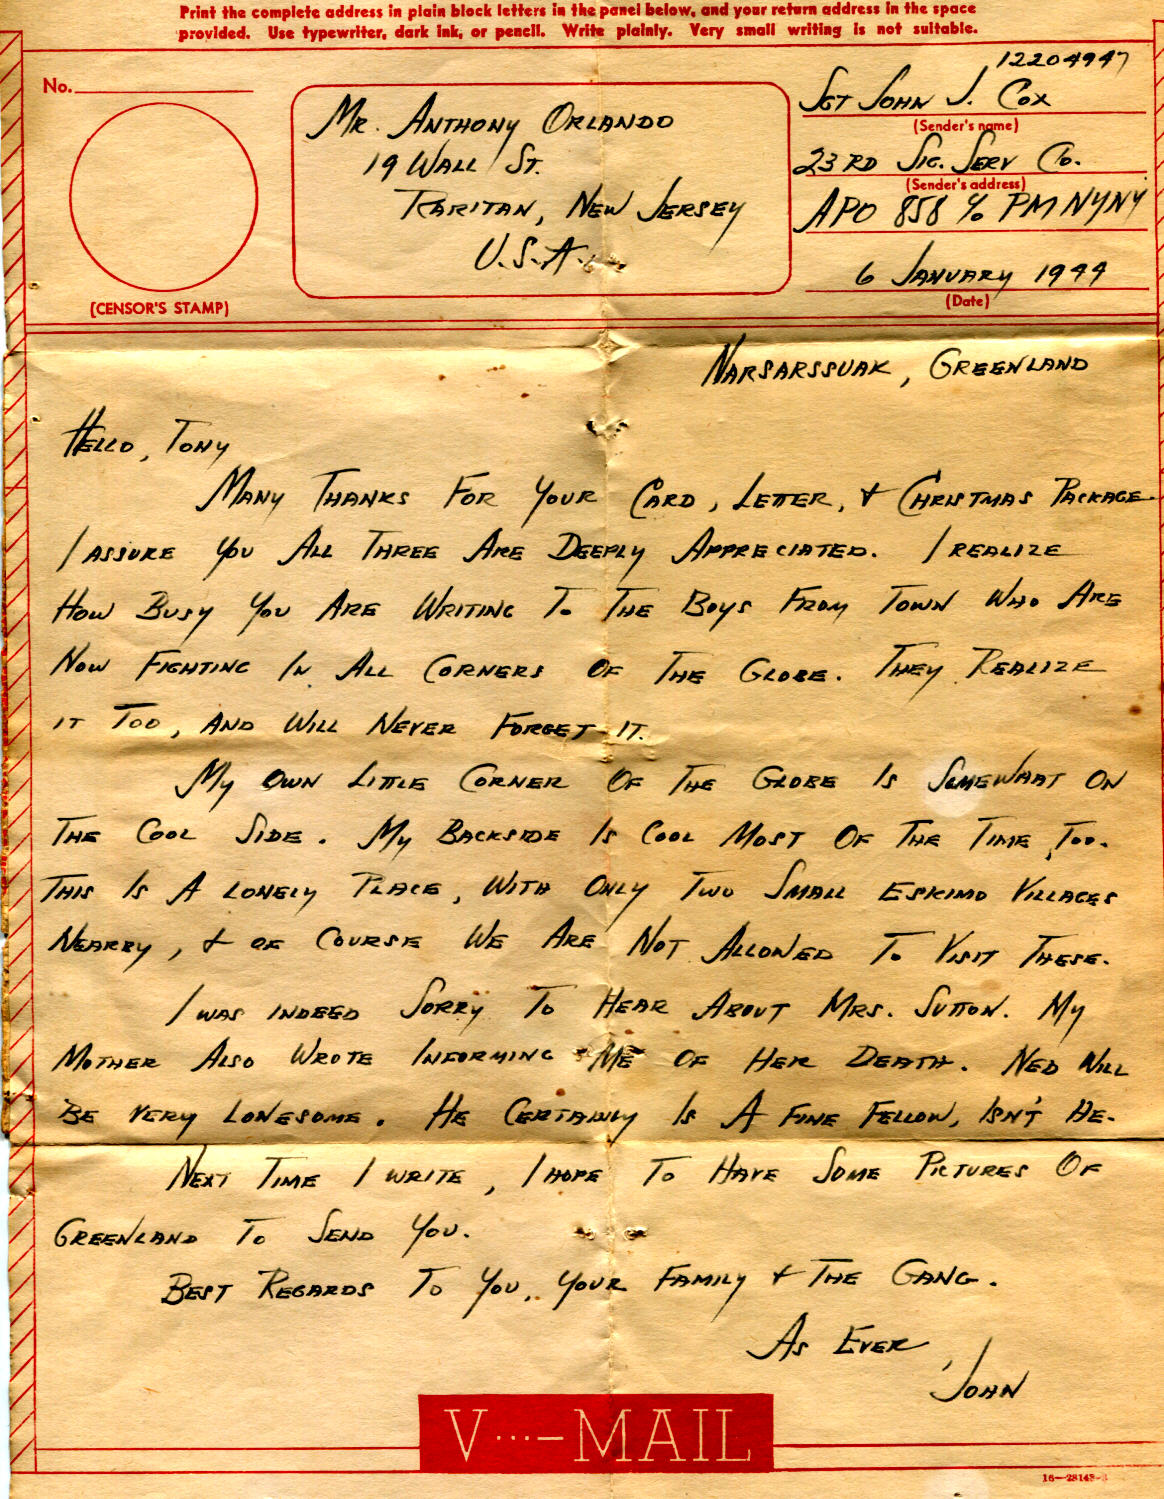 Print the complete address in plain block letters in the panel below, and your return address in the space
provided. Use typewriter, dark ink, or pencil. Write plainly. Very small writing is not suitable.
No.
(CENSOR'S STAMP)
MR. ANTHONY ORLANDO
19 WALL ST.
RARITAN, NEW JERSEY
U.S.A.
12204947
SGT JOHN J. COX
(Sender's name)
23RD SIG. SERV CO.
(Sender's address)
APO 858 % PM NYNY
6 JANUARY 1944
(Date)
NARSARSSUAK, GREENLAND
HELLO, TONY
MANY THANKS FOR YOUR CARD, LETTER, & CHRISTMAS PACKAGE
I ASSURE YOU ALL THREE ARE DEEPLY APPRECIATED. I REALIZE
HOW BUSY YOU ARE WRITING TO THE BOYS FROM TOWN WHO ARE
NOW FIGHTING IN ALL CORNERS OF THE GLOBE. THEY REALIZE
IT TOO, AND WILL NEVER FORGET IT.
MY OWN LITTLE CORNER OF THE GLOBE IS SOMEWHAT ON
THE COOL SIDE. MY BACKSIDE IS COOL MOST OF THE TIME, TOO.
THIS IS A LONELY PLACE, WITH ONLY TWO SMALL ESKIMO VILLAGES
NEARBY, & OF COURSE WE ARE NOT ALLOWED TO VISIT THESE.
I WAS INDEED SORRY TO HEAR ABOUT MRS. SUTTON. MY
MOTHER ALSO WROTE INFORMING ME OF HER DEATH. NED WILL
BE VERY LONESOME. HE CERTAINLY IS A FINE FELLOW, ISN'T HE.
NEXT TIME I WRITE, I HOPE TO HAVE SOME PICTURES OF
GREENLAND TO SEND YOU.
BEST REGARDS TO YOU, YOUR FAMILY & THE GANG.
AS EVER,
JOHN
V···—MAIL
16—28143-3